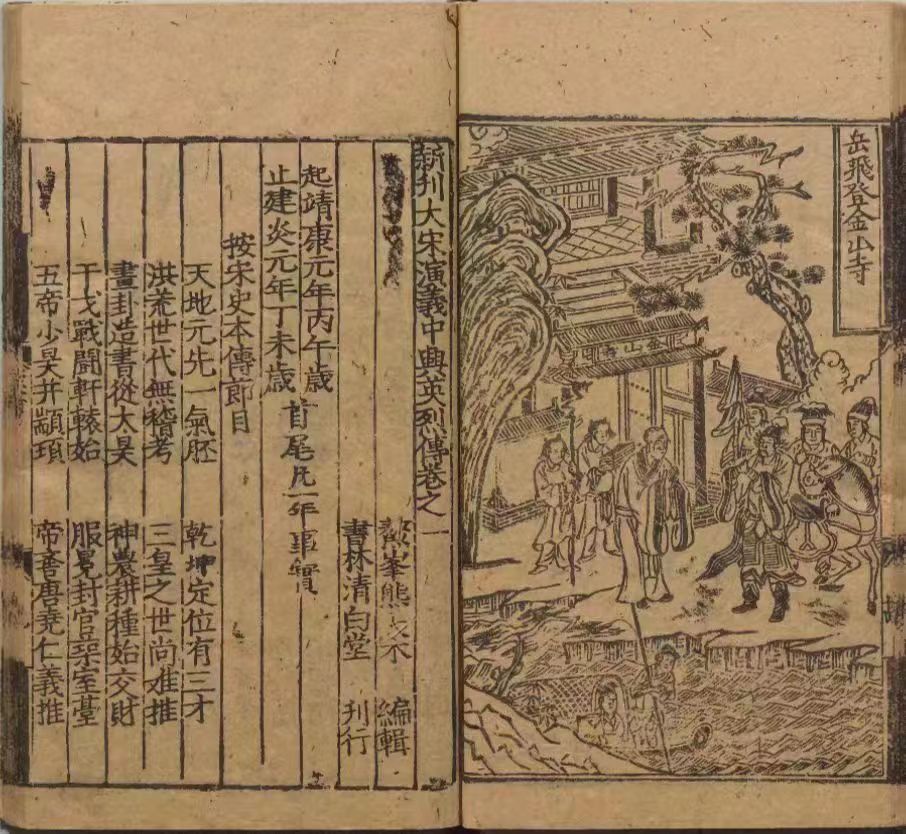 岳飛登金山寺
金山寺
新刊大宋演義中興英列傳卷之一
鰲峯熊大木 編輯
書林清白堂 刊行
起靖康元年丙午歲
止建炎元年丁未歲
首尾凡一年事實
按宋史本傳節目
天地元先一氣胚 乾坤定位有三才
洪荒世代無稽考 三皇之世尚难推
畫卦造書從太昊 神農耕種始交財
干戈戰鬪軒轅始 服冕封官築室臺
五帝少昊并顓頊 帝嚳唐堯仁義推